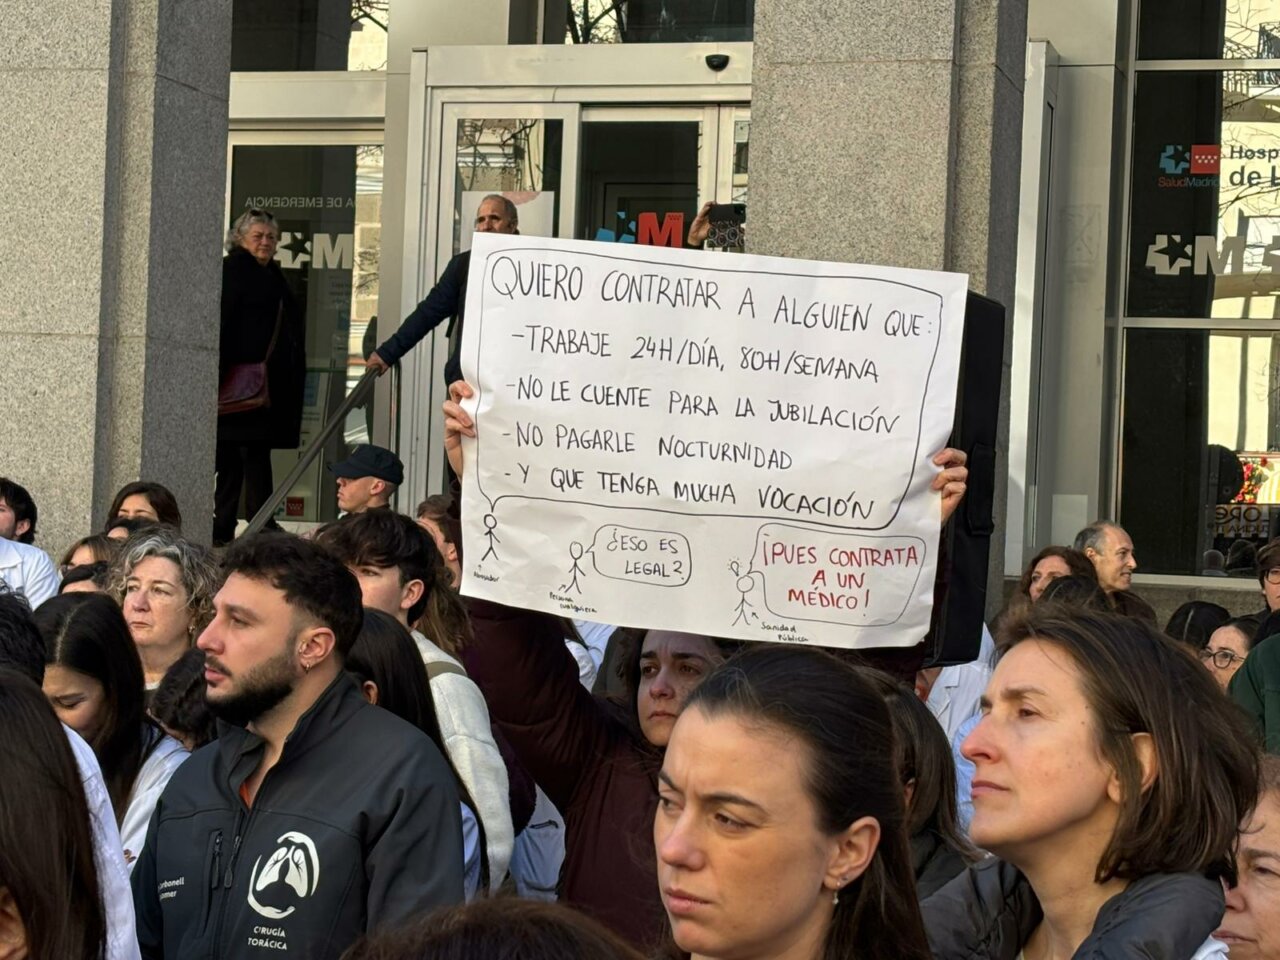 QUIERO CONTRATAR A ALGUIEN QUE:
-TRABAJE 24H/DÍA, 80H/SEMANA
-NO LE CUENTE PARA LA JUBILACIÓN
-NO PAGARLE NOCTURNIDAD
-Y QUE TENGA MUCHA VOCACIÓN
¿ESO ES
LEGAL?
¡PUES CONTRATA
A UN
MÉDICO!
Persona
cualquiera
Sanidad
Pública
A DE EMERGENCIA
M
M
SaludMadrid
Hosp
de L
M
CIRUGÍA
TORÁCICA